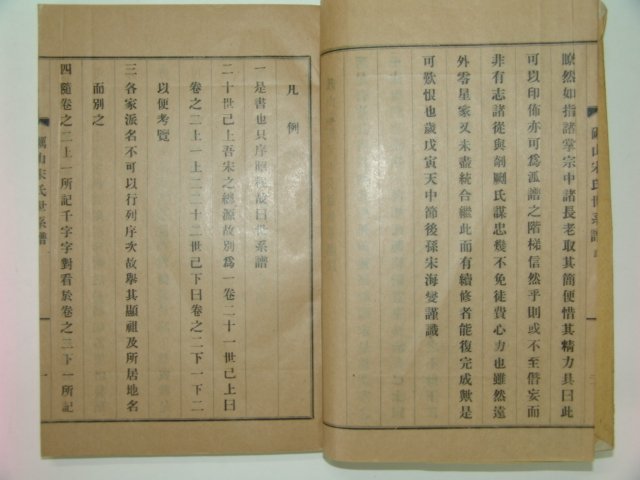 瞭然如指諸掌宗中諸長老取其簡便惜其精力具曰此
可以印佈亦可為派譜之階梯信然乎則或不至僭妄而
非有志諸從與剞劂氏謀忠幾不免徒費心力也雖然遠
外零星家又未盡統合繼此而有續修者能復完成歟是
可歎恨也歲戊寅天中節後孫宋海燮謹識
礪山宋氏世系譜
凡例
一是書也只序昭穆故曰世系譜
二十世己上吾宋之總源故別為一卷二十一世己上曰
卷之二上一上二二十二世己下曰卷之二下一下二
以便考覽
三各家派名不可以行列序次故擧其顯祖及所居地名
而別之
四隨卷之二上一所記千字字對看於卷之二下一所記
礪山宋氏世系譜
一